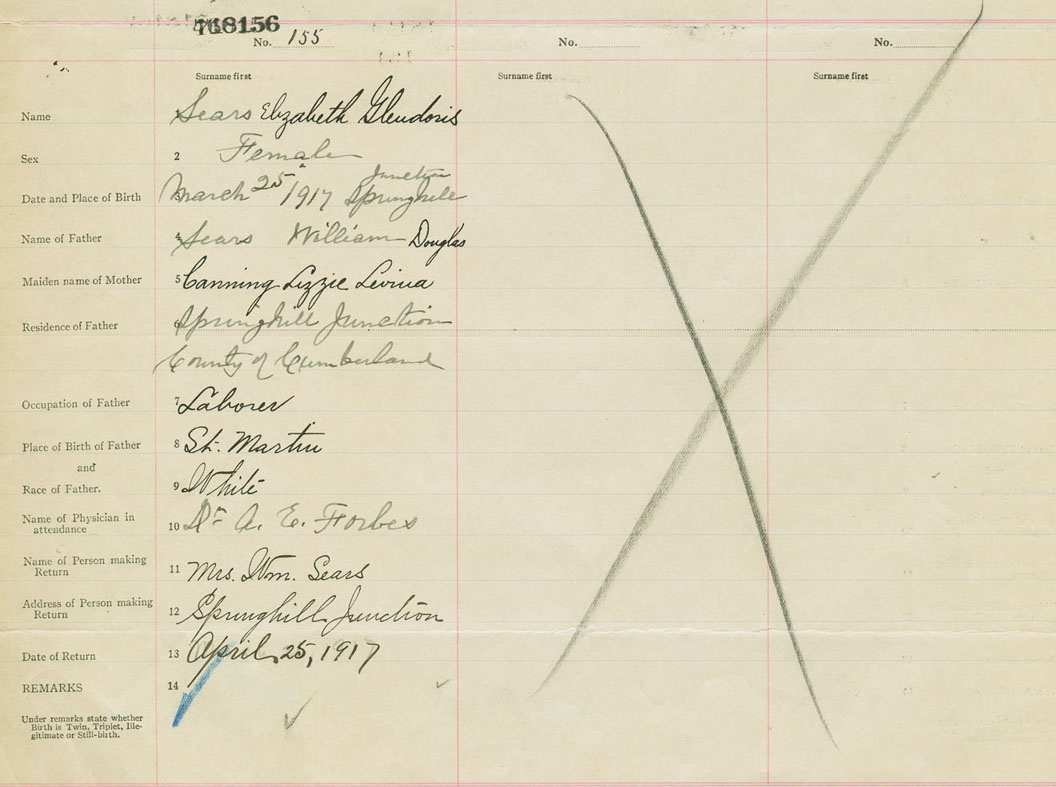 768156
No. 155 No. No.
Surname first Surname first Surname first
Name Sears Elizabeth Glendoris
Sex 2 Female
Junction
Date and Place of Birth March 25 1917 Springhill
Name of Father 4 Sears William Douglas
Maiden name of Mother 5 Canning Lizzie Levina
Residence of Father Springhill Junction
County of Cumberland
Occupation of Father 7 Laborer
Place of Birth of Father 8 St. Martin
and
Race of Father. 9 White
Name of Physician in
attendance 10 Dr A. E. Forbes
Name of Person making
Return 11 Mrs. Wm. Sears
Address of Person making
Return 12 Springhill Junction
Date of Return 13 April 25, 1917
REMARKS 14
Under remarks state whether
Birth is Twin, Triplet, Ille-
gitimate or Still-birth.